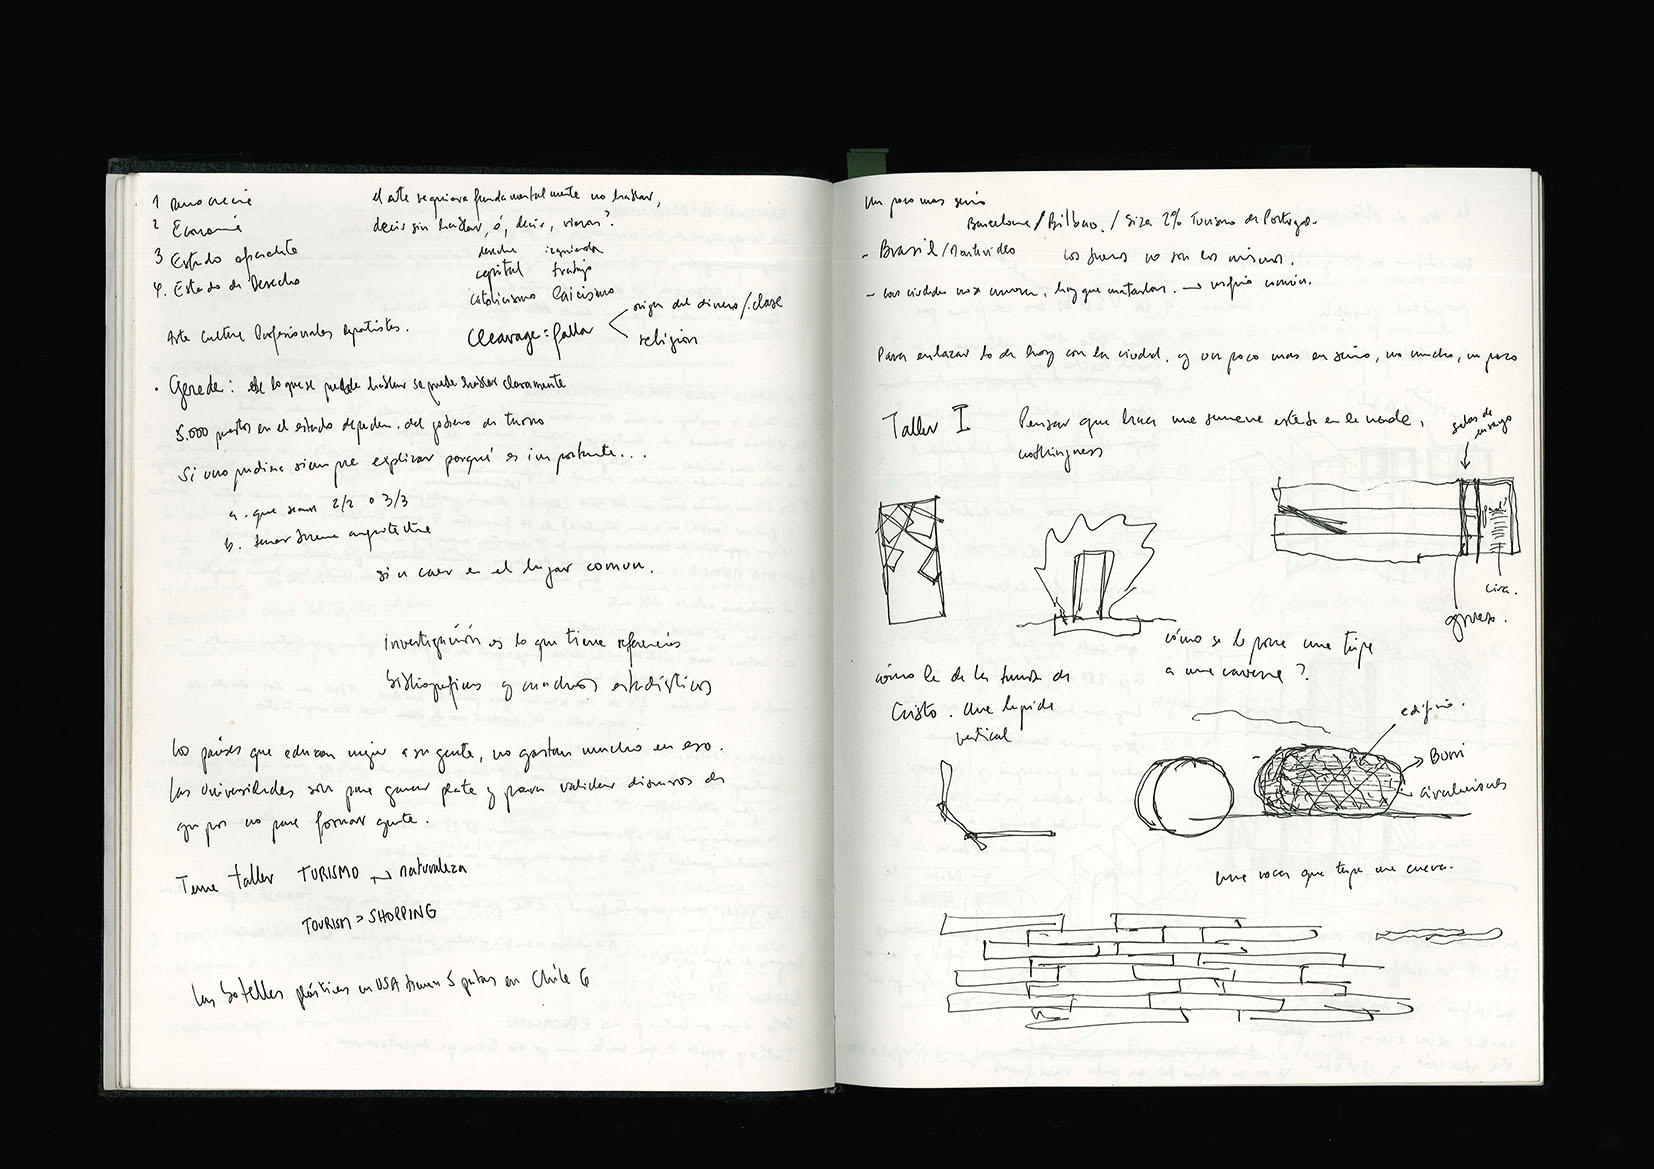 1
2 Economía
3 Estado
4. Estado de Derecho
el arte requiere fundamentalmente no hablar,
decir sin hablar, ó, decir,
derecha izquierda
capital trabajo
catolicismo laicismo
Cleavage = falla
origen del dinero / clase
religión
Arte Cultura Profesionales
. Gerede: lo que se puede hablar se puede hablar claramente
5.000 puestos en el estado depeden. del gobierno de turno
Si uno pudiera siempre explicar porqué es importante...
a. que sean 2/2 o 3/3
b. buena arquitectura
sin caer en el lugar comun.
Investigación es lo que tiene referencias
bibliograficas y cuadros estadísticos
Los países que educan mejor a su gente, no gastan mucho en eso.
Las Universidades son para ganar plata y para validar discursos de
grupos no para formar gente.
Tema taller TURISMO naturaleza
TOURISM > SHOPPING
Las botellas plásticas en USA tienen 5 patas en Chile 6
Un poco mas serio
Barcelona / Bilbao. / Siza 2% Turismo de Portugal.
- Brasil / Montevideo Los no son los mismos.
- Las ciudades no se hay que matarlas. →
Para enlazar lo de hoy con la ciudad, y un poco mas en serio, no mucho, un poco
Taller I Pensar que hace una semana estaba en la nada,
nothingness
cómo se le pone una tapa
a una caverna?
cómo la de la tumba de
Cristo. Una lapida
vertical
grueso.
edificio.
Burri
una roca que tapa una cueva.